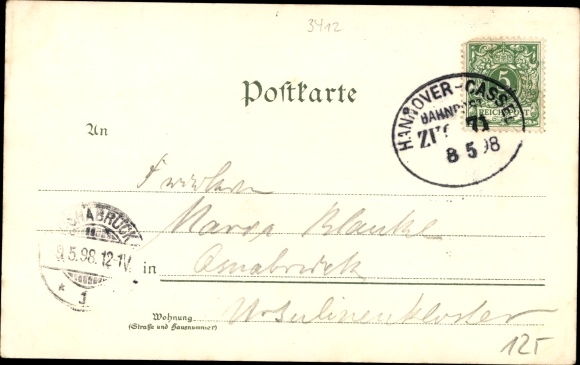 3412
Postkarte
5
REICHSPOST
HANNOVER-CASSEL
BAHNPOST
ZUG
8 5 98
An
Fräulein
Maria Klanke
OSNABRÜCK
5.98. 12-1V.
* 1
in
Osnabrück
Wohnung
(Straße und Hausnummer)
Ursulinenkloster
12T